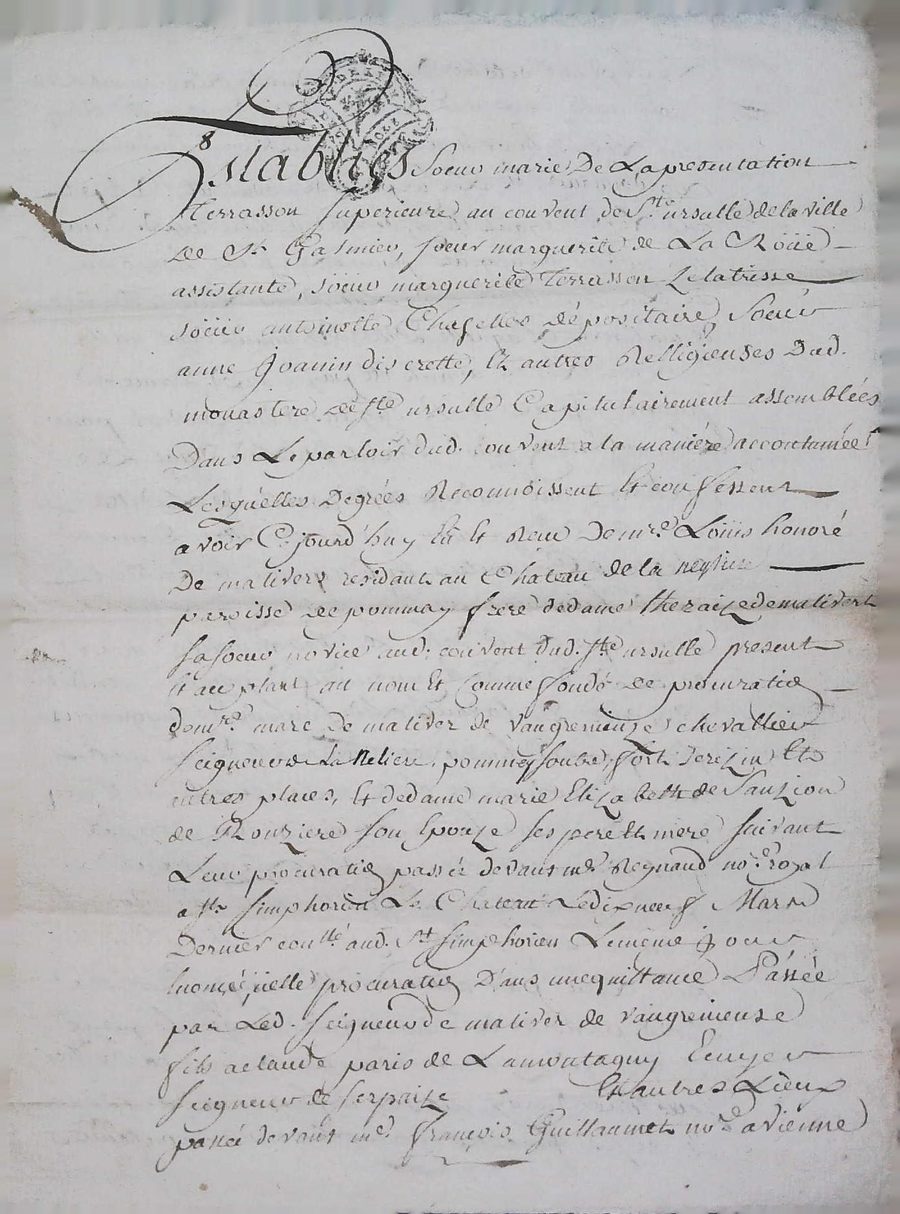 Establies Soeur marie De Lapresentation
Terrasson Superieure au couvent de Ste ursulle de la ville
de St Galmier, soeur marguerite de La Roüe
assistante, soeur marguerite Terrasson Zelatrisse
soeur antoinette Chaselles dépositaire, Soeur
anne Joanin discrette, Et autres Relligieuses Dud.
monastere de Ste ursulle Capitulairement assemblées
Dans Le parloir dud. couvent a la maniére accoutumée
Lesquelles Degrées Reconnoissent Et confessent
avoir Cejourd'huy Eu Et Receu De mre. Loüis honoré
De mativer residant au Chateau de la
paroisse de pommay frere de dame theraize de mativert
Sa soeur novice aud. couvent dud. Ste ursulle present
Et acceptant au nom Et Comme fondé de procuration
de mre. marc De mativer de vaugrenieuse chevallier
Seigneur de La Neliere, pommey Et
autres places, Et de dame marie Elizabeth de Sauzion
de Rouziere son Epouze ses pere Et mere suivant
Leur procuration passée devant me Reynaud nore. royal
a St. Simphorien Le Chateau Le dixneuf Mars
Dernier conllé aud. St Simphorien Le méme Jour
procuration Dans une quittance Passée
par Led. Seigneur de mativer de vaugrenieuse
fils a claude paris de Lamontagny Ecuyer
Seigneur de Serpaize Et autres Lieux
passée devant me. François Guillaumet nore. a vienne